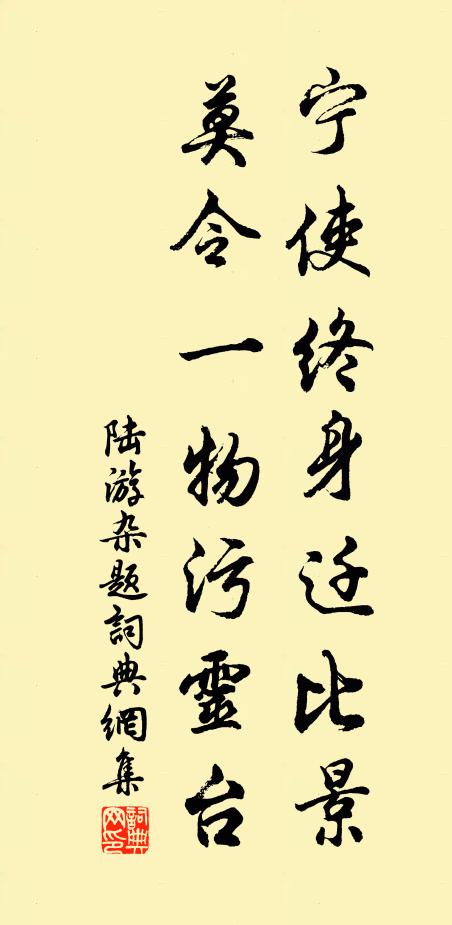 宁使终身迁比景
莫令一物污靈台
陆游杂题詞典網集
詞典网印